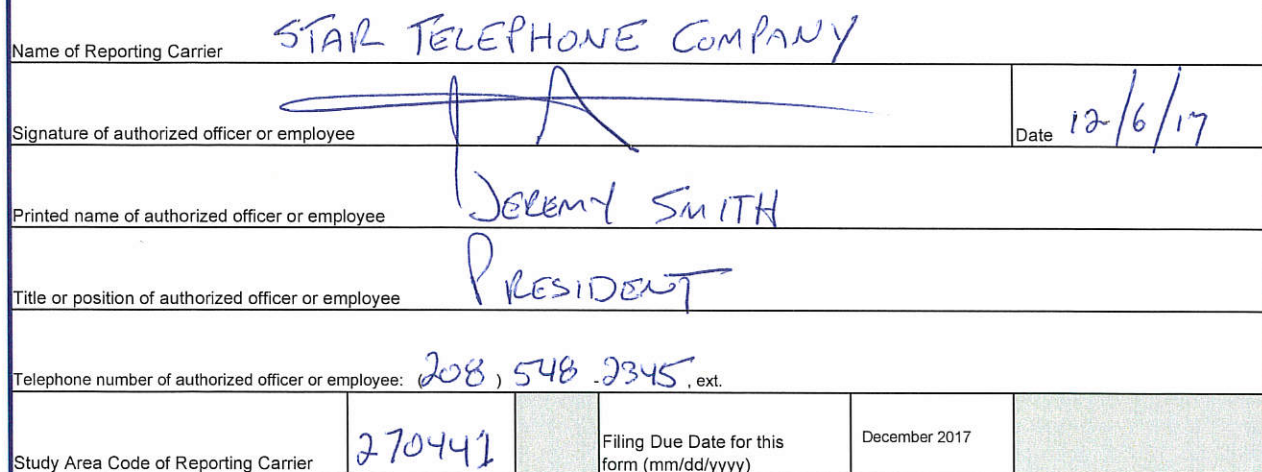 Name of Reporting Carrier STAR TELEPHONE COMPANY
Signature of authorized officer or employee Date 12/6/17
Printed name of authorized officer or employee JEREMY SMITH
Title or position of authorized officer or employee PRESIDENT
Telephone number of authorized officer or employee: (208) 548 -2345, ext.
Study Area Code of Reporting Carrier 270441 Filing Due Date for this form (mm/dd/yyyy) December 2017